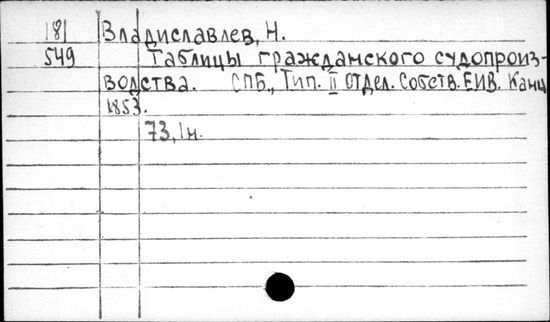 181 Владиславлев, Н.
549 Таблицы гражданского судопроиз-
водства. СПБ., Тип. II Отдел. Собств. ЕИВ. Канц
1853.
73, 1 н.